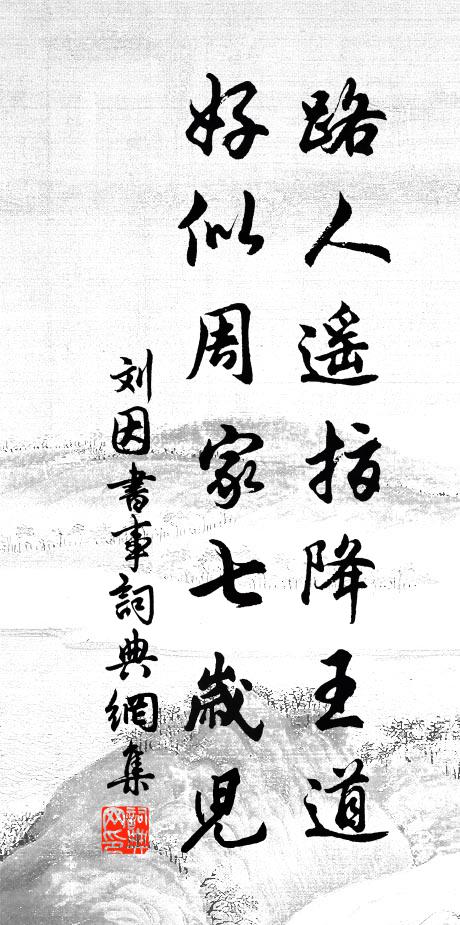 路人遥指降王道
好似周家七歲児
刘因書事詞典網集